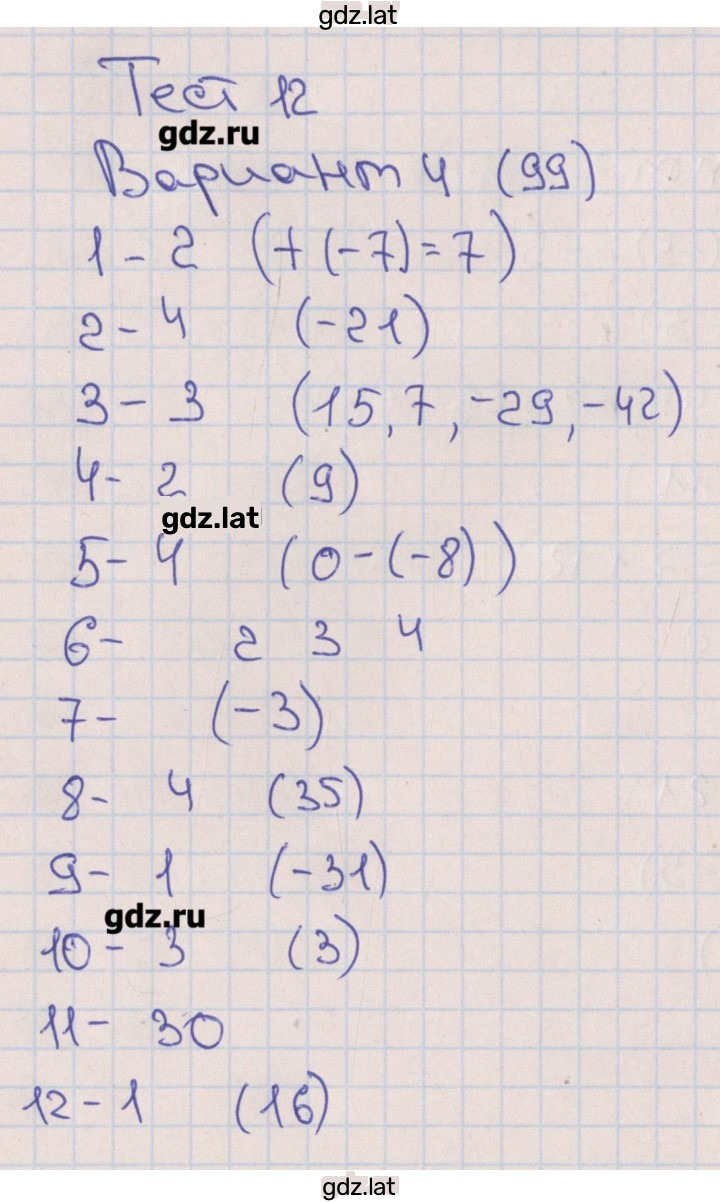 gdz.lat
Тест 12
gdz.ru
Вариант 4 (99)
1 - 2 (+(-7)=7)
2 - 4 (-21)
3 - 3 (15, 7, -29, -42)
4 - 2 (9)
gdz.lat
5 - 4 (0-(-8))
6 - 2 3 4
7 - (-3)
8 - 4 (35)
9 - 1 (-31)
gdz.ru
10 - 3 (3)
11 - 30
12 - 1 (16)
gdz.lat